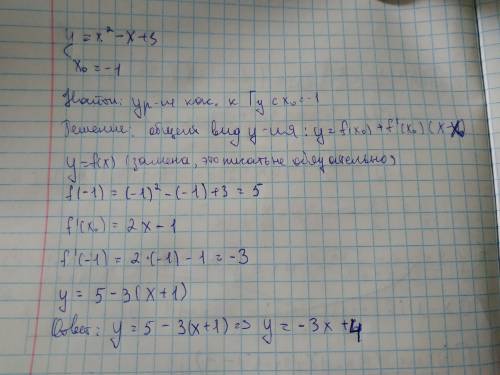 y = x² - x + 3
x₀ = -1
Найти: ур-ие кас. к Гу с x₀ = -1
Решение: общий вид у-ия: y = f(x₀) + f'(x₀)(x-x₀)
y = f(x) (замена, это писать не обязательно)
f(-1) = (-1)² - (-1) + 3 = 5
f'(x₀) = 2x - 1
f'(-1) = 2·(-1) - 1 = -3
y = 5 - 3(x+1)
Ответ: y = 5 - 3(x+1) => y = -3x + 4